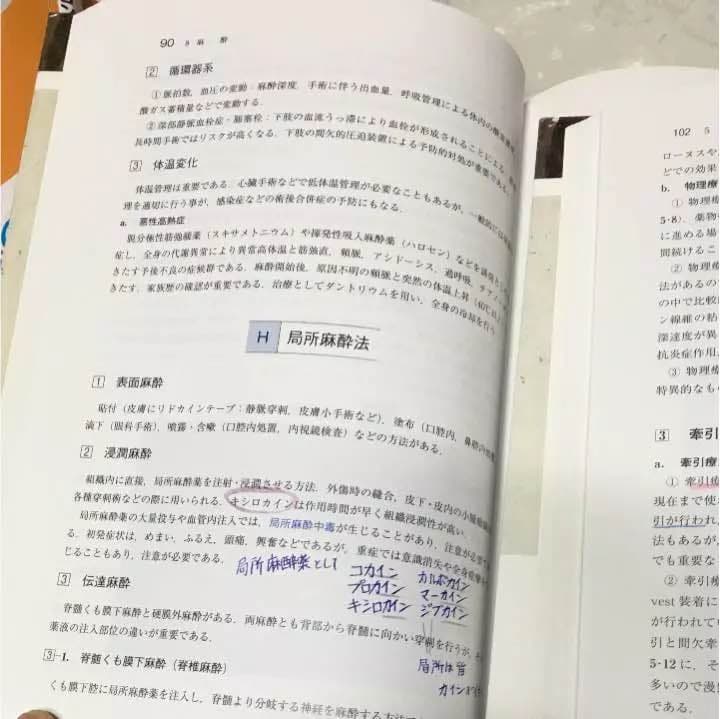 90 5 麻 酔
2 循環器系
①脈拍数，血圧の変動：麻酔深度，手術に伴う出血量，呼吸管理による体内の酸素
酸ガス蓄積量などで変動する．
②深部静脈血栓症・肺塞栓：下肢の血流うっ滞により血栓が形成されることによる．
長時間手術ではリスクが高くなる．下肢の間欠的圧迫装置による予防的対処が重要である．
3 体温変化
体温管理は重要である．心臓手術などで低体温管理が必要なこともあるが，一般的には
理を適切に行う事が，感染症などの術後合併症の予防にもなる．
a. 悪性高熱症
脱分極性筋弛緩薬（スキサメトニウム）や揮発性吸入麻酔薬（ハロセン）などを誘因と
症し，全身の代謝異常により異常高体温と筋強直，頻脈，アシドーシス，過呼吸，チアノー
きたす予後不良の症候群である．麻酔開始後，原因不明の頻脈と突然の体温上昇（40℃以
きたす．家族歴の確認が重要である．治療としてダントリウムを用い，全身の冷却を行う
H 局所麻酔法
1 表面麻酔
貼付（皮膚にリドカインテープ：静脈穿刺，皮膚小手術など），塗布（口腔内，鼻腔内
滴下（眼科手術），噴霧・含嗽（口腔内処置，内視鏡検査）などの方法がある．
2 浸潤麻酔
組織内に直接，局所麻酔薬を注射・浸潤させる方法．外傷時の縫合，皮下・皮内の小腫瘤
各種穿刺術などの際に用いられる．キシロカインは作用時間が早く組織浸潤性が高い．
局所麻酔薬の大量投与や血管内注入では，局所麻酔中毒が生じることがあり，注意が必要
る．初発症状は，めまい，ふるえ，頭痛，興奮などであるが，重症では意識消失や全身痙攣
じることもあり，注意が必要である．
局所麻酔薬として
コカイン カルボカイン
プロカイン マーカイン
キシロカイン ジブカイン
局所は皆
カイン
3 伝達麻酔
脊髄くも膜下麻酔と硬膜外麻酔がある．両麻酔とも背部から脊髄に向かい穿刺を行うが，
薬液の注入部位の違いが重要である．
3-1. 脊髄くも膜下麻酔（脊椎麻酔）
くも膜下腔に局所麻酔薬を注入し，脊髄より分岐する神経を麻酔する方法
102 5
ローヌスや
どでの効果
b. 物理療
① 物理
5・8)．薬物
に進める場
間続けるこ
② 物理療
法があるので
の中で比較
ン線維の粘
深速度が異
抗炎症作用
③ 物理
特異的なも
3 牽引
a. 牽引療
① 牽引療
現在まで使
引が行われ
法もあるが，
でも重要な
② 牽引
vest 装着に
が行われて
引と間欠牽
5・12 に，そ
多いので漫
である．